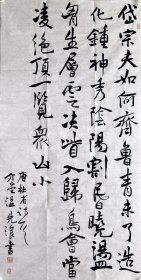 岱宗夫如何齊魯青未了造
化鍾神秀陰陽割昏曉盪
胷生層雲决眥入歸鳥會當
凌絶頂一覽衆山小
唐杜甫詩
書